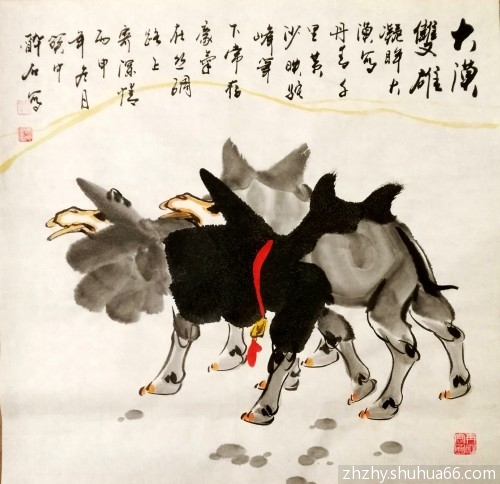 大漠
雙雄
凝眸大
漠寫
丹青千
里黄
沙映駝
峰筆
下常抒
豪氣
在丝绸
路上
寄深情
丙申
年冬月
醉石寫
zhzhy.shuhua66.com